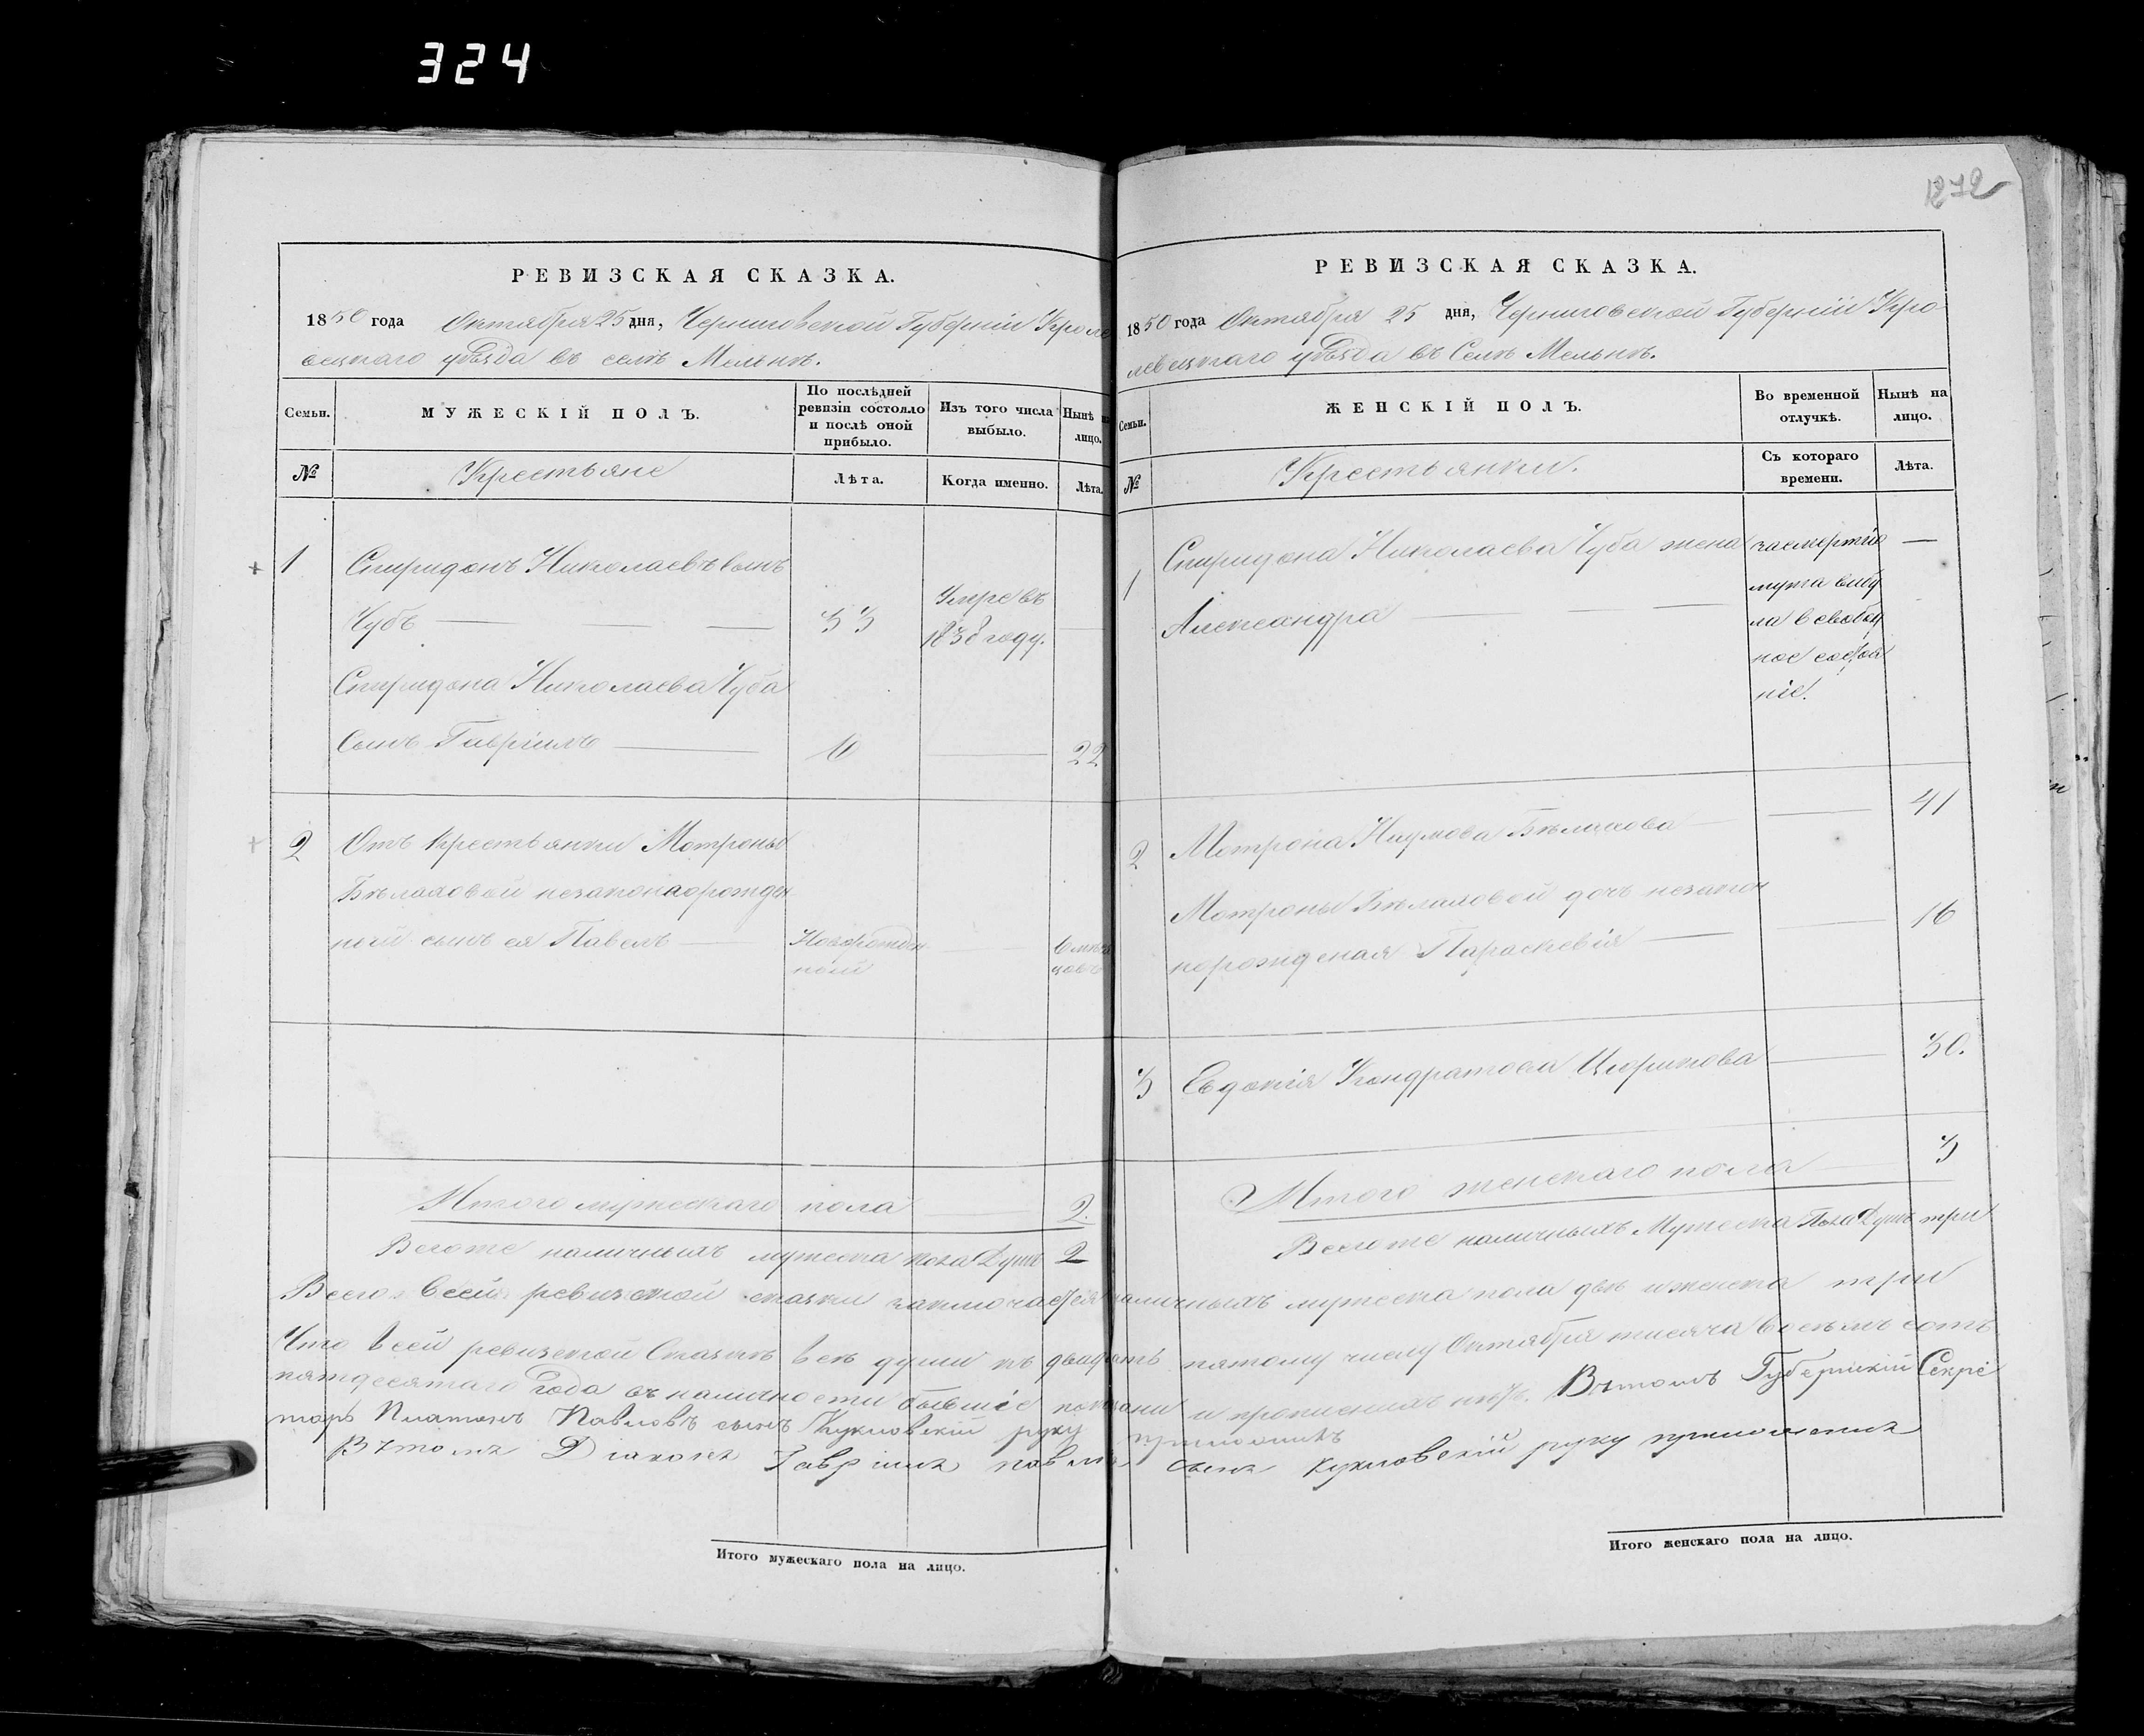 324
РЕВИЗСКАЯ СКАЗКА.
1850 года Октября 25 дня, Черниговской Губерніи Кроле
вецкаго уѣзда въ селѣ Мельнѣ.
Семьи.
МУЖЕСКІЙ ПОЛЪ.
По послѣдней
ревизіи состояло
и послѣ оной
прибыло.
Изъ того числа
выбыло.
Нынѣ на
лицо.
№
Крестьяне
Лѣта.
Когда именно.
Лѣта.
1 Спиридонъ Николаевъ сынъ
Чубъ — — — 33 Умре въ 1838 году. —
Спиридона Николаева Чуба
сынъ Гавріилъ — 10 — 22
2 Отъ крестьянки Мотроны
Бѣлаховой незаконаорожден
ный сынъ ея Павелъ — Новорожден
ный — 6 мѣся
цовъ
Итого мужескаго пола — 2.
Всегоже наличныхъ мужеска пола Душъ 2
РЕВИЗСКАЯ СКАЗКА.
1850 года Октября 25 дня, Черниговской Губерніи Кро
левецкаго уѣзда въ Селѣ Мельнѣ.
Семьи.
ЖЕНСКІЙ ПОЛЪ.
Во временной
отлучкѣ.
Нынѣ на
лицо.
№
Крестьянки.
Съ котораго
времени.
Лѣта.
1 Спиридона Николаева Чуба жена
Александра — — —
засмертію —
мужа выбы
ла в свобод
ное состоя
ніе.
2 Мотрона Наумова Бѣлахова — — 41
Мотроны Бѣлаховой дочь незакон
норожденая Параскевія — — 16
3 Евдокія Кондратова — 30.
Итого женскаго пола — 3
Всегоже наличныхъ Мужеска Пола Душъ три
Всего в сей ревизской сказки заключается наличныхъ мужеска пола двѣ и женска три
Что в сей ревизской Сказкѣ всѣ души къ двадцать пятому числу Октября тысяча восемъ сотъ
пятдесятаго Года въ наличности бывшіе показани и прописныхъ нѣтъ. Вътомъ Губернскій Секре
тарь Платонъ Павловъ сынъ Кукловскій руку приложилъ
Вътомъ Діаконъ Гавріилъ павловъ сынъ кукловскій руку приложилъ
Итого мужескаго пола на лицо.
Итого женскаго пола на лицо.